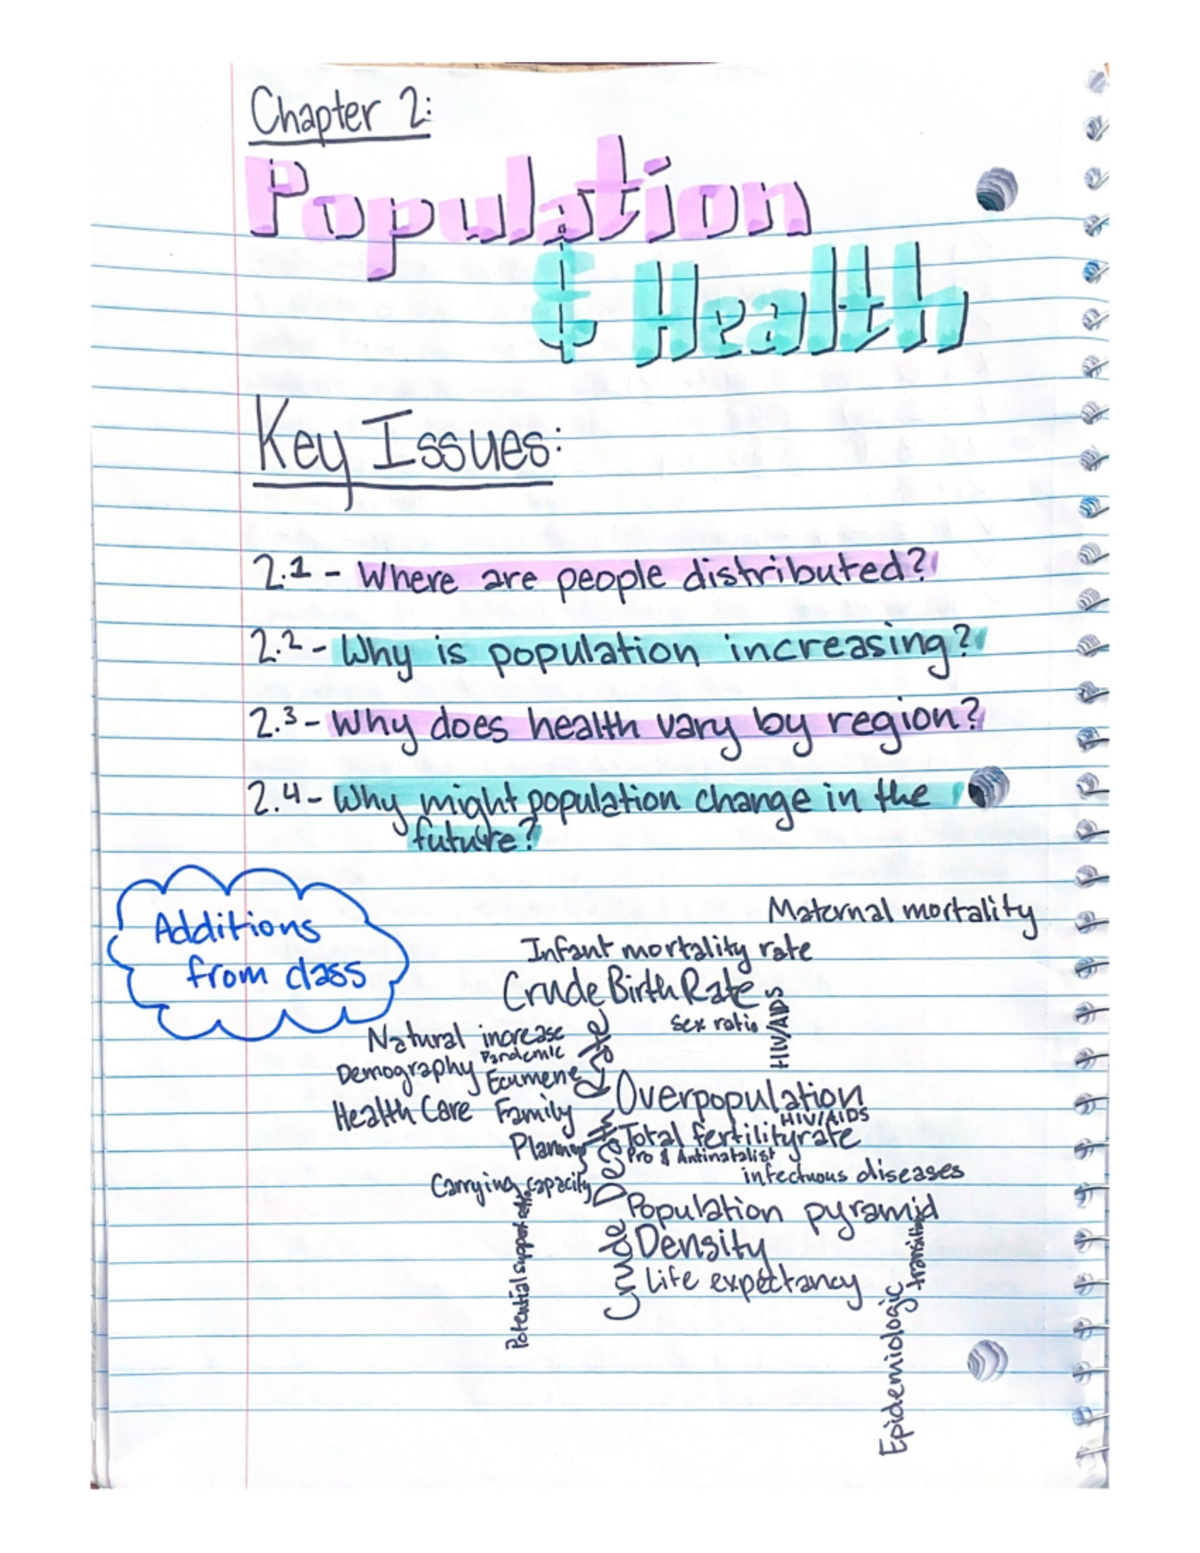 Chapter 2:
Population
& Health
Key Issues:
2.1 - Where are people distributed?
2.2 - Why is population increasing?
2.3 - Why does health vary by region?
2.4 - Why might population change in the
future?
Additions
from class
Maternal mortality
Infant mortality rate
Crude Birth Rate
Sex ratio
HIV/AIDS
Natural increase
Pandemic
Demography
Ecumene
Health Care
Family
Planning
Overpopulation
HIV/AIDS
Total fertility rate
Pro & Antinatalist
infectuous diseases
Carrying capacity
Crude Death Rate
Population pyramid
Density
Life expectancy
Potential support ratio
Epidemiologic transition